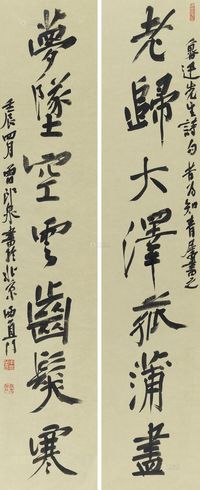 老歸大澤菰蒲盡
魯迅先生詩句昔為知青屢書之
夢墜空雲齒髮寒
壬辰四月曾印泉書於北京西直門